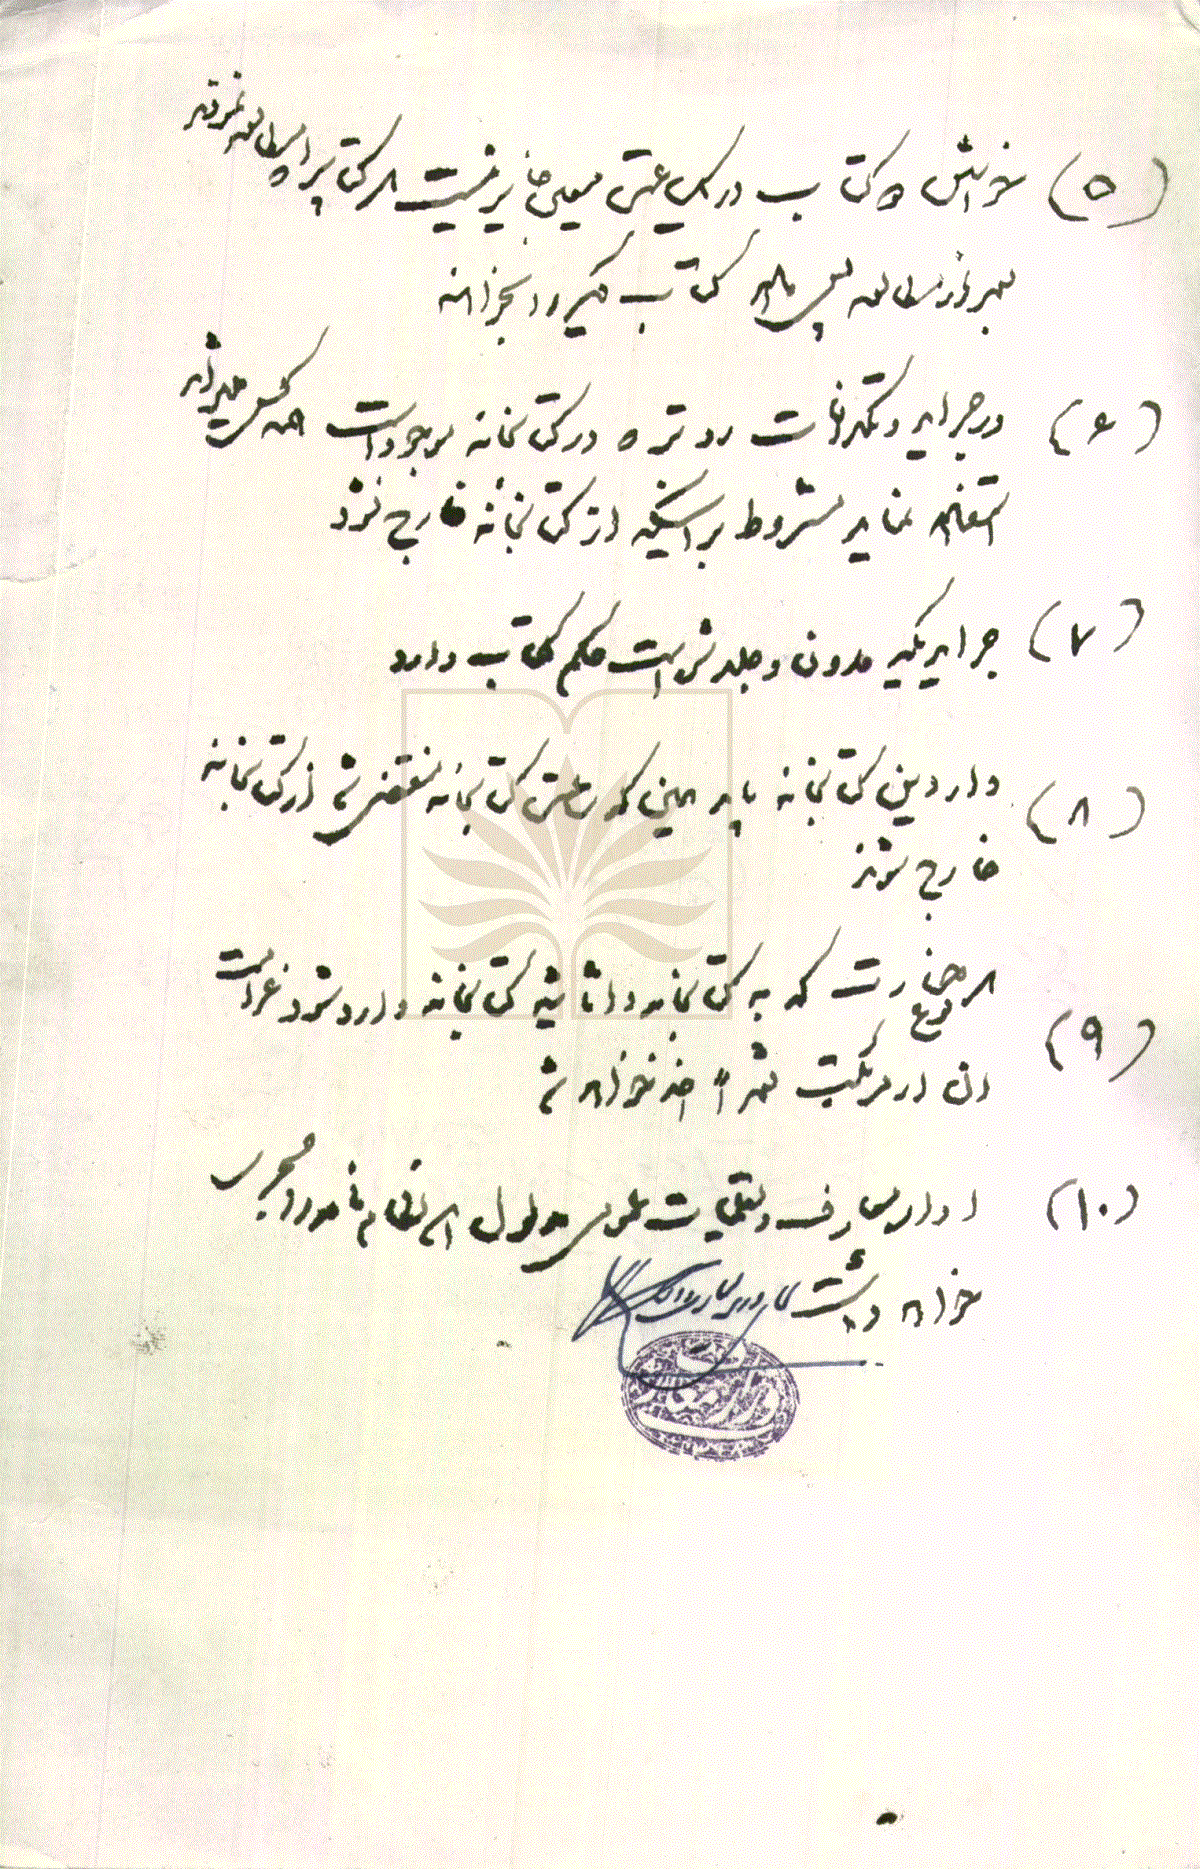 (۵) خواهش دو کتاب در یک وقت معین جایز نیست هر کتاب را مطالعه نموده
بعد از مطالعه پس داده کتاب دیگر را بخواهند
(۶) در جراید و تلگرافات روتر که در کتابخانه موجود است همه کس میتواند
استفاده نماید مشروط بر اینکه از کتابخانه خارج نشود
(۷) جرایدیکه مدون و جلد شده است حکم کتاب دارد
(۸) واردین کتابخانه باید همین که ساعت کتابخانه منقضی شد از کتابخانه
خارج شوند
(۹) هر نوع خسارت که به کتابخانه و اثاثیه کتابخانه وارد شود غرامت
آن از مرتکب نقداً اخذ خواهد شد
(۱۰) اداره معارف و تعلیمات عمومی مدلول این نظام نامه را مجری
خواهد داشت